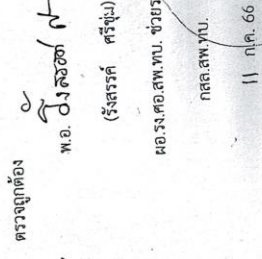 ตรวจถูกต้อง
พ.อ.
(รังสรรค์ ศรีชุม)
ผอ.รง.ศอ.สพ.ทบ. ช่วยร
กสล.สพ.ทบ.
11 ก.ค. 66